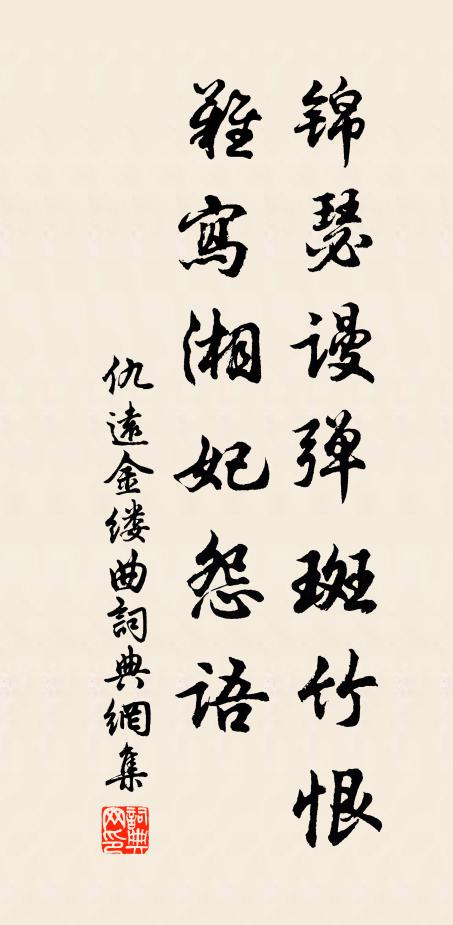 锦瑟谩弹斑竹恨
难寫湘妃怨语
仇遠金缕曲詞典網集
詞典网印